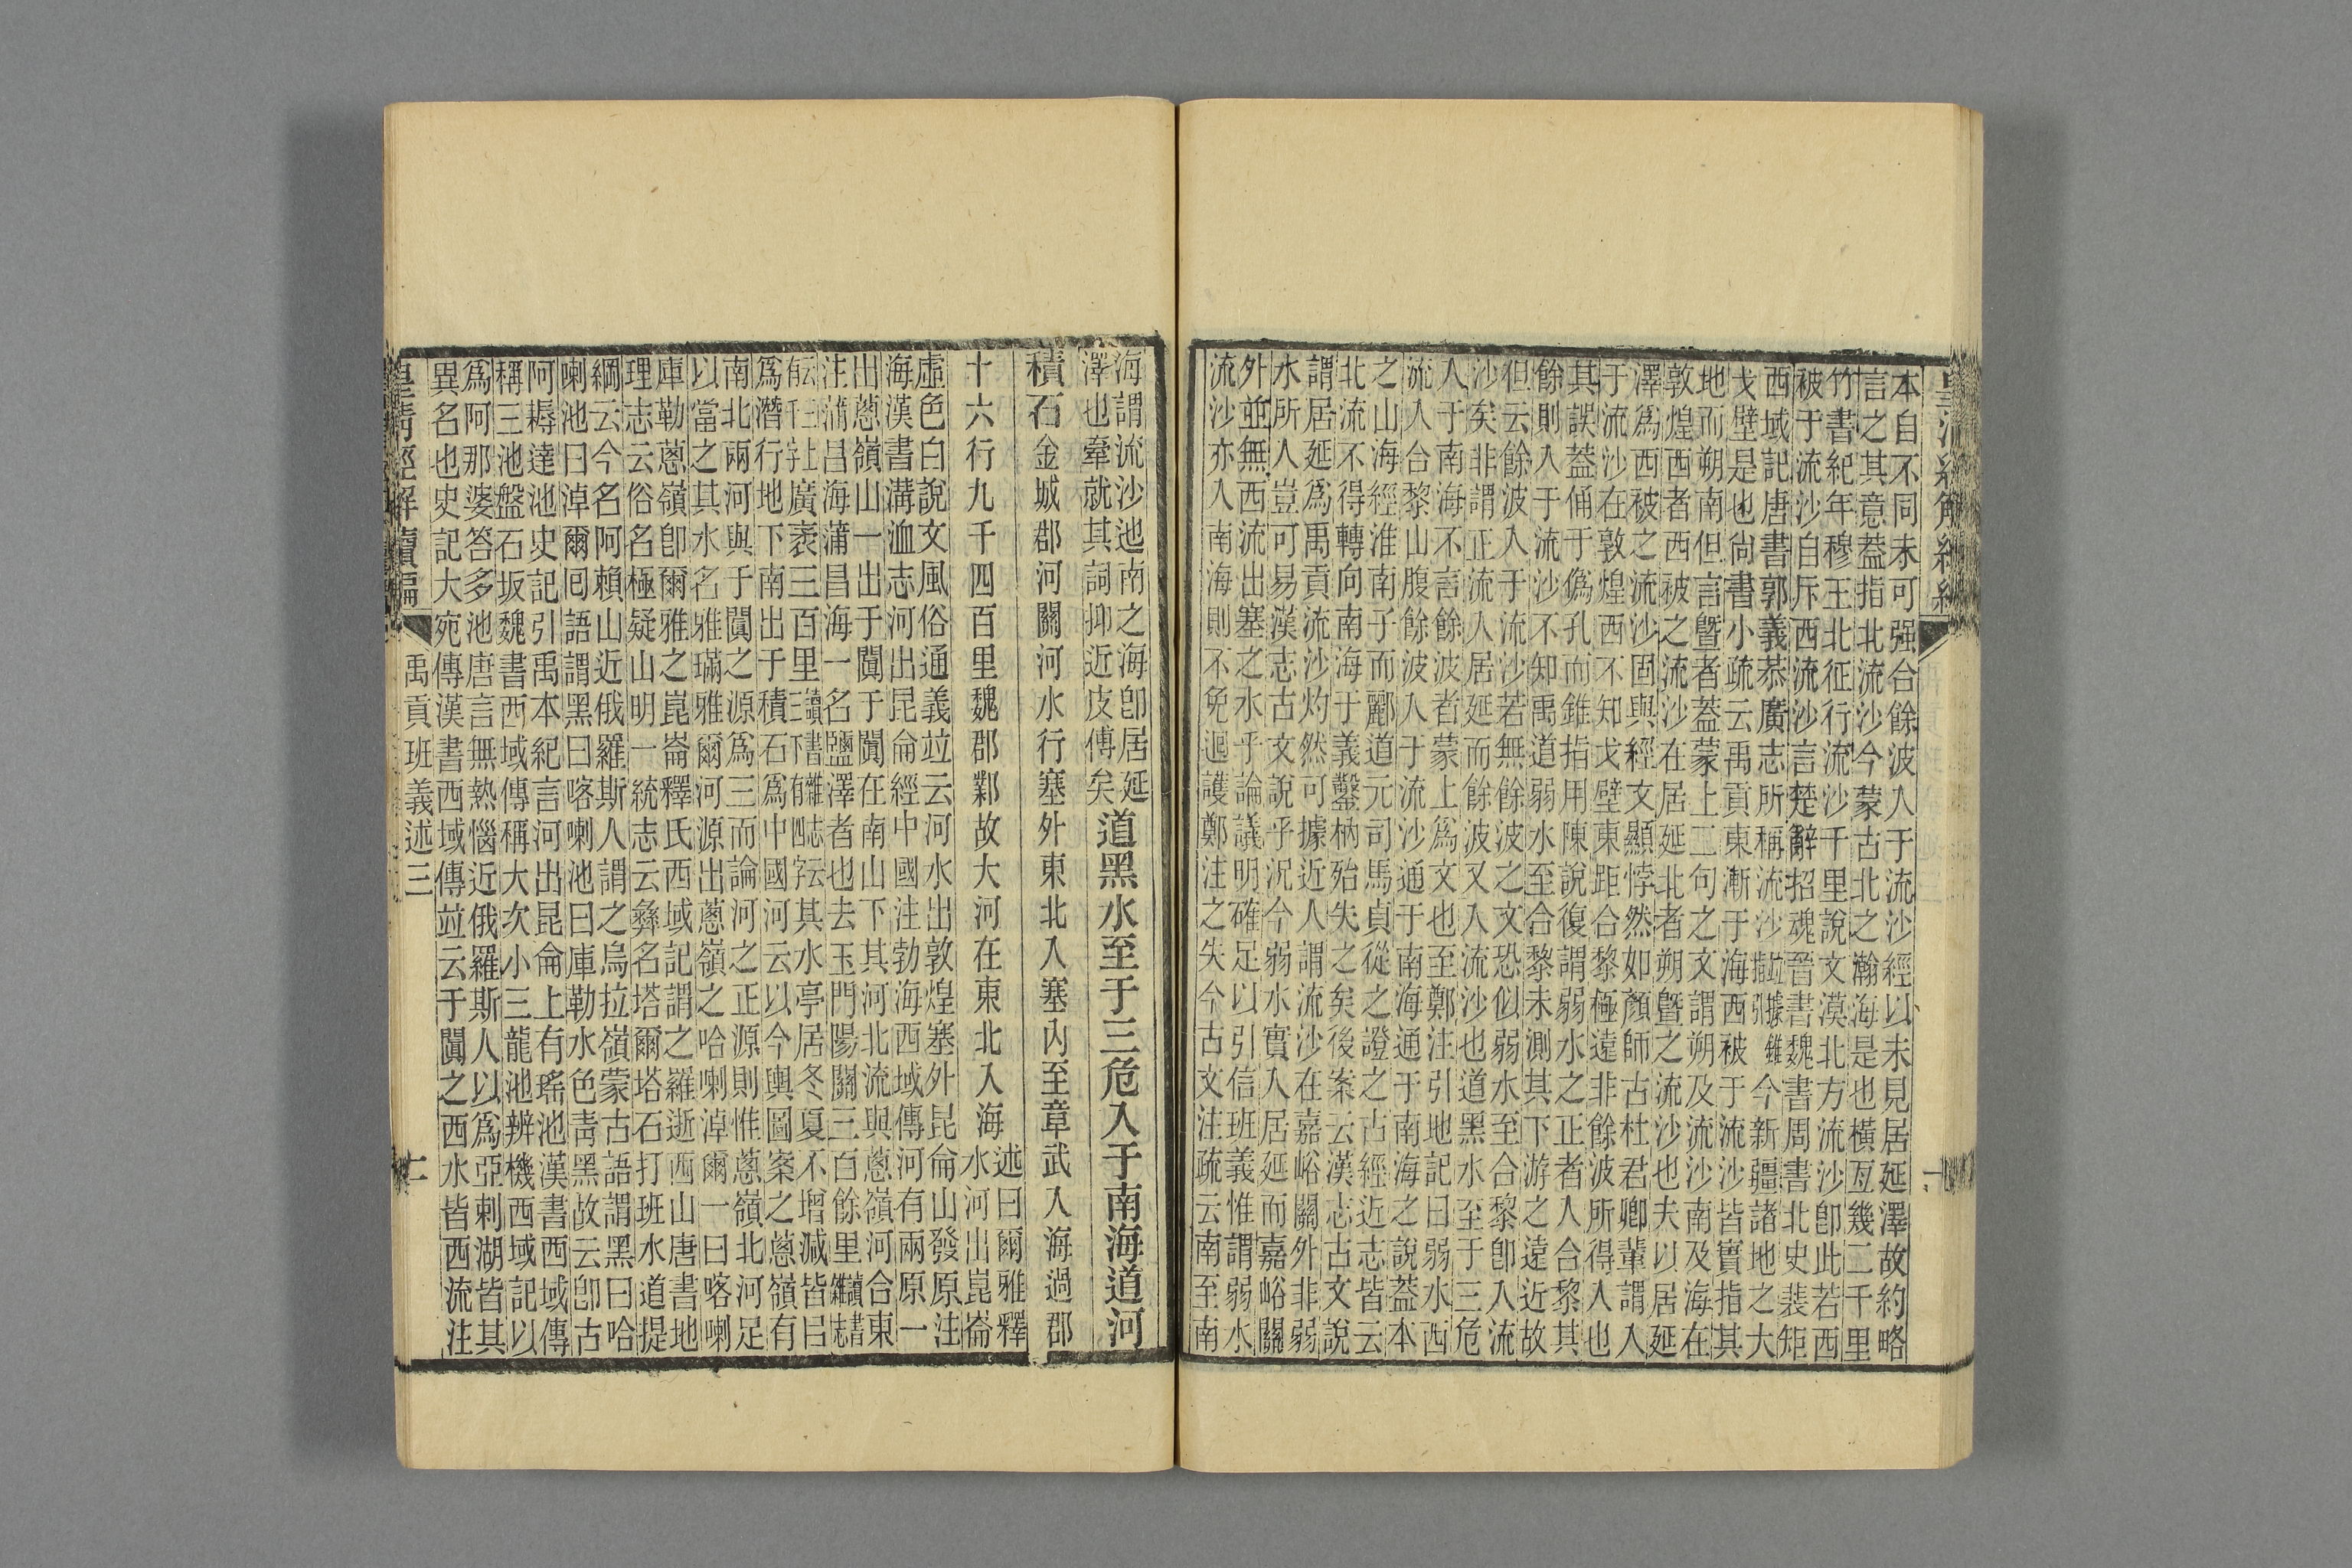 皇清經解續編
本自不同未可强合餘波入于流沙經以未見居延澤故約略
言之其意葢指北流沙今蒙古北之瀚海是也橫亙幾二千里
竹書紀年穆王北征行流沙千里說文漠北方流沙卽此若西
被于流沙自斥西流沙言楚辭招魂晉書魏書周書北史裴矩
西域記唐書郭義恭廣志所稱流沙今新疆諸地之大
戈壁是也尙書小疏云禹貢東漸于海西被于流沙皆實指其
地而朔南但言曁者葢蒙上二句之文謂朔及流沙南及海在
敦煌西者西被之流沙在居延北者朔曁之流沙也夫以居延
澤爲西被之流沙固與經文顯悖然如顏師古杜君卿輩謂入
于流沙在敦煌西不知戈壁東距合黎極遠非餘波所得入也
其誤葢俑于僞孔而錐指用陳說復謂弱水之正者入合黎其
餘則入于流沙不知禹道弱水至合黎未測其下游之遠近故
但云餘波入于流沙若無餘波之文恐似弱水至合黎卽入流
沙矣非謂正流入居延而餘波又入流沙也道黑水至于三危
入于南海不言餘波者蒙上爲文也至鄭注引地記曰弱水西
流入合黎山腹餘波入于流沙通于南海通于南海之說葢本
之山海經淮南子而酈道元司馬貞從之證之古經近志皆云
北流不得轉向南海于義鑿枘殆失之矣後案云漢志古文說
謂居延爲禹貢流沙灼然可據近人謂流沙在嘉峪關外非弱
水所人豈可易漢志古文說乎況今弱水實入居延而嘉峪關
外並無西流出塞之水乎論議明確足以引信班義惟謂弱水
流沙亦入南海則不免迴護鄭注之失今古文注疏云南至南
海謂流沙池南之海卽居延
澤也牽就其詞抑近皮傅矣
道黑水至于三危入于南海道河
積石金城郡河關河水行塞外東北入塞內至章武入海過郡
十六行九千四百里魏郡鄴故大河在東北入海
述曰爾雅釋
水河出崑崙
虛色白說文風俗通義竝云河水出敦煌塞外昆侖山發原注
海漢書溝洫志河出昆侖經中國注勃海西域傳河有兩原一
出蔥嶺山一出于闐于闐在南山下其河北流與蔥嶺河合東
注蒲昌海蒲昌海一名鹽澤者也去玉門陽關三百餘里
廣袤三百里其水亭居冬夏不增減皆曰
爲潛行地下南出于積石爲中國河云以今輿圖案之蔥嶺有
南北兩河與于闐之源爲三而論河之正源則惟蔥嶺北河足
以當之其水名雅璊雅爾河源出蔥嶺之哈喇淖爾一曰喀喇
庫勒蔥嶺卽爾雅之崑崙釋氏西域記謂之羅逝西山唐書地
理志云俗名極疑山明一統志云彝名塔爾塔石打班水道提
綱云今名阿賴山近俄羅斯人謂之烏拉嶺蒙古語謂黑曰哈
喇池曰淖爾囘語謂黑曰喀喇池曰庫勒水色靑黑故云卽古
阿耨達池史記引禹本紀言河出昆侖上有瑤池漢書西域傳
稱三池盤石坂魏書西域傳稱大次小三龍池辨機西域記以
爲阿那婆答多池唐言無熱惱近俄羅斯人以爲亞剌湖皆其
異名也史記大宛傳漢書西域傳竝云于闐之西水皆西流注
皇清經解續編 禹貢班義述三